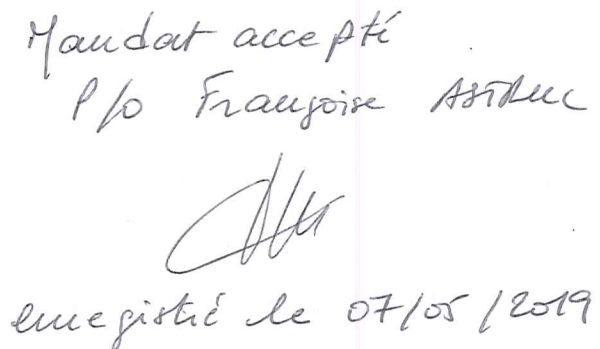 Mandat accepté
P/o Françoise ASTRUC
enregistré le 07/05/2019